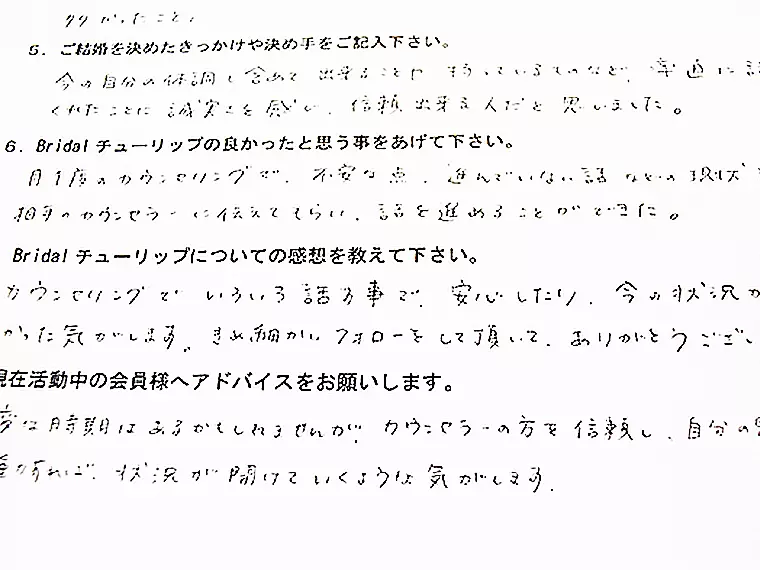 かったこと。
5. ご結婚を決めたきっかけや決め手をご記入下さい。
今の自分の体調も含めて、出来ることや、まっているものなど、率直に話
くれたことに誠実さを感じ、信頼出来る人だと思いました。
6. Bridalチューリップの良かったと思う事をあげて下さい。
月1度のカウンセリングで、不安な点、進んでいない話などの現状
相手のカウンセラーに伝えてもらい、話を進めることができた。
Bridalチューリップについての感想を教えて下さい。
カウンセリングでいろいろ話す事で、安心したり、今の状況が
かった気がします。きめ細かいフォローをして頂いて、ありがとうござい
現在活動中の会員様へアドバイスをお願いします。
変な時期はあるかもしれませんが、カウンセラーの方を信頼し、自分の
すれば、状況が開けていくような気がします。